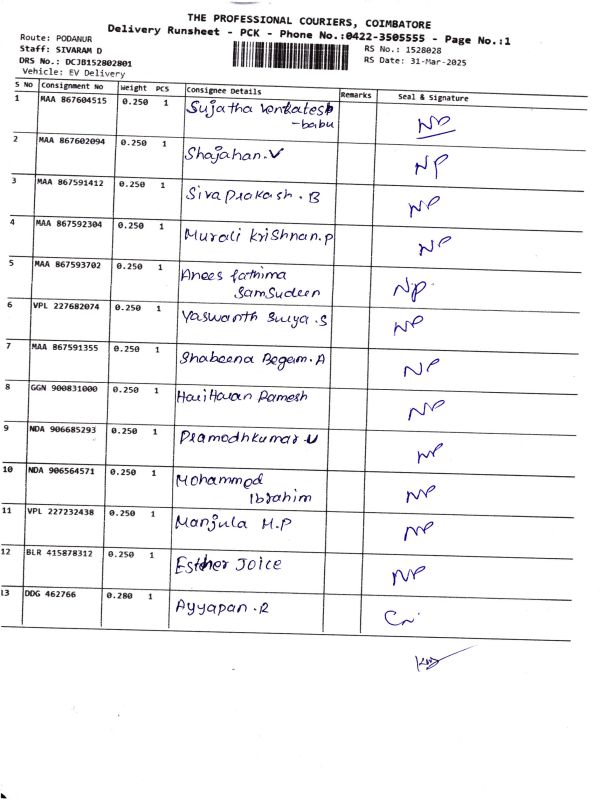 THE PROFESSIONAL COURIERS, COIMBATORE
Delivery Runsheet - PCK - Phone No.:0422-3505555 - Page No.:1
Route: PODANUR
RS No.: 1528028
Staff: SIVARAM D
RS Date: 31-Mar-2025
DRS No.: DCJB152802801
Vehicle: EV Delivery
S No Consignment No Weight PCS Consignee Details Remarks Seal & Signature
1 MAA 867604515 0.250 1 Sujatha Venkatesh
-babu NP
2 MAA 867602094 0.250 1 Shajahan.V NP
3 MAA 867591412 0.250 1 Sivaprakash.B NP
4 MAA 867592304 0.250 1 Murali Krishnan.P NP
5 MAA 867593702 0.250 1 Anees fathima
Samsudeen NP
6 VPL 227682074 0.250 1 Yaswanth Surya.S NP
7 MAA 867591355 0.250 1 Shabeena Begam.A NP
8 GGN 900831000 0.250 1 HariHaran Ramesh NP
9 NDA 906685293 0.250 1 Pramodhkumar V NP
10 NDA 906564571 0.250 1 Mohammed
Ibrahim NP
11 VPL 227232438 0.250 1 Manjula M.P NP
12 BLR 415878312 0.250 1 Esther Joice NP
13 DDG 462766 0.280 1 Ayyapan.R